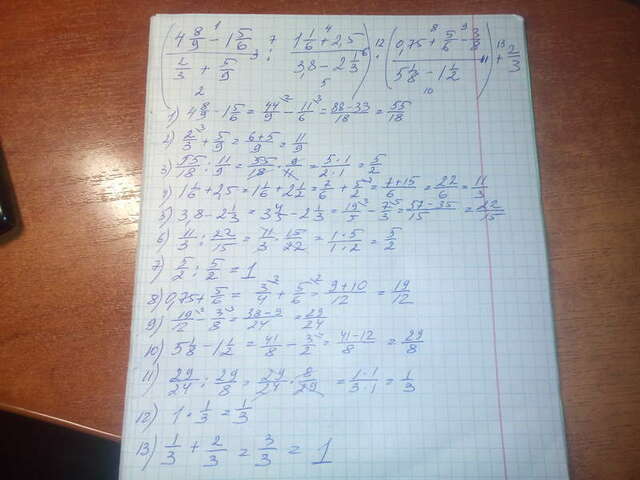 (4 8/9 - 1 5/6 / 2/3 + 5/9 : 1 1/6 + 2,5 / 3,8 - 2 1/3) · (0,75 + 5/6 - 3/8 / 5 1/8 - 1 1/2) + 2/3
1) 4 8/9 - 1 5/6 = 44/9 - 11/6 = 88-33/18 = 55/18
2) 2/3 + 5/9 = 6+5/9 = 11/9
3) 55/18 : 11/9 = 55/18 · 9/11 = 5·1/2·1 = 5/2
4) 1 1/6 + 2,5 = 1 1/6 + 2 1/2 = 7/6 + 5/2 = 7+15/6 = 22/6 = 11/3
5) 3,8 - 2 1/3 = 3 4/5 - 2 1/3 = 19/5 - 7/3 = 57-35/15 = 22/15
6) 11/3 : 22/15 = 11/3 · 15/22 = 1·5/1·2 = 5/2
7) 5/2 : 5/2 = 1
8) 0,75 + 5/6 = 3/4 + 5/6 = 9+10/12 = 19/12
9) 19/12 - 3/8 = 38-9/24 = 29/24
10) 5 1/8 - 1 1/2 = 41/8 - 3/2 = 41-12/8 = 29/8
11) 29/24 : 29/8 = 29/24 · 8/29 = 1·1/3·1 = 1/3
12) 1 · 1/3 = 1/3
13) 1/3 + 2/3 = 3/3 = 1